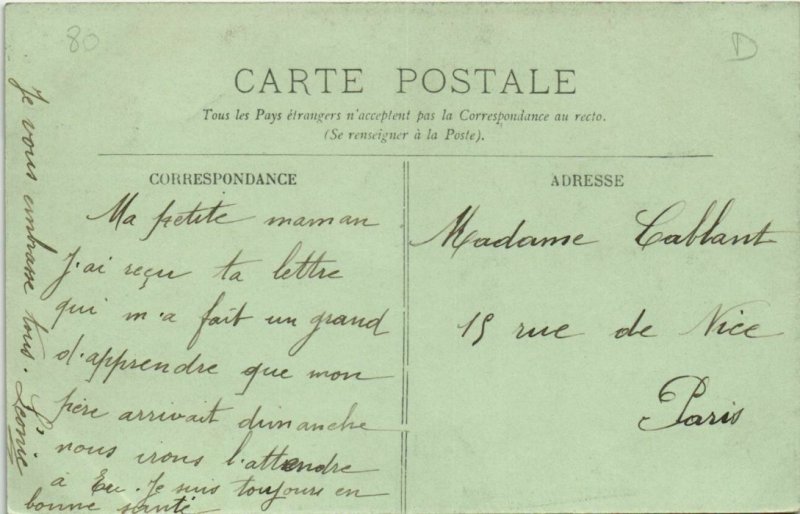 80
D
CARTE POSTALE
Tous les Pays étrangers n'acceptent pas la Correspondance au recto.
(Se renseigner à la Poste).
CORRESPONDANCE
Ma petite maman
J'ai reçu ta lettre
qui m'a fait un grand
d'apprendre que mon
père arrivait dimanche
nous irons l'attendre
à Eu. Je suis toujours en
bonne santé
Je vous embrasse tous. Léonie
ADRESSE
Madame Cablant
15 rue de Nice
Paris